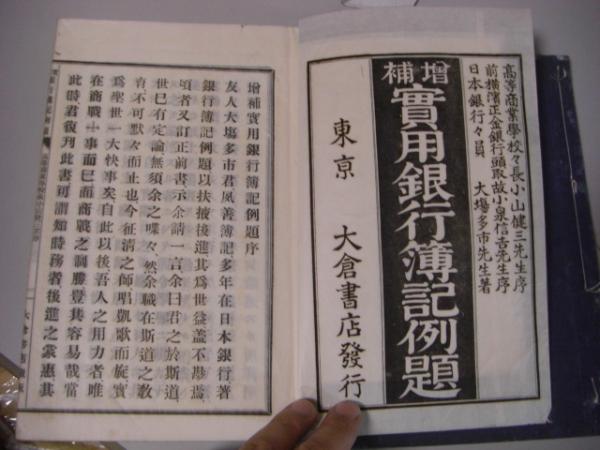 高等商業學校々長小山健三先生序
前横濱正金銀行頭取故小泉信吉先生序
日本銀行々員 大塲多市先生著
增補
實用銀行簿記例題
東京 大倉書店發行
增補實用銀行簿記例題序
友人大塲多市君夙善簿記多年在日本銀行著
銀行簿記例題以扶掖後進其爲世益盖不尠焉
頃者又訂正前書示余請一言余曰君之於斯道
世已有定論無須余之喋々然余職在斯道之敎
育不可默々而止也今征淸之師唱凱歌而旋實
爲曠世一大快事矣自此以後吾人之用力者唯
在商戰一事而已而商戰之制勝豈其容易哉當
此時君復刋此書可謂知時務者後進之裳惠其